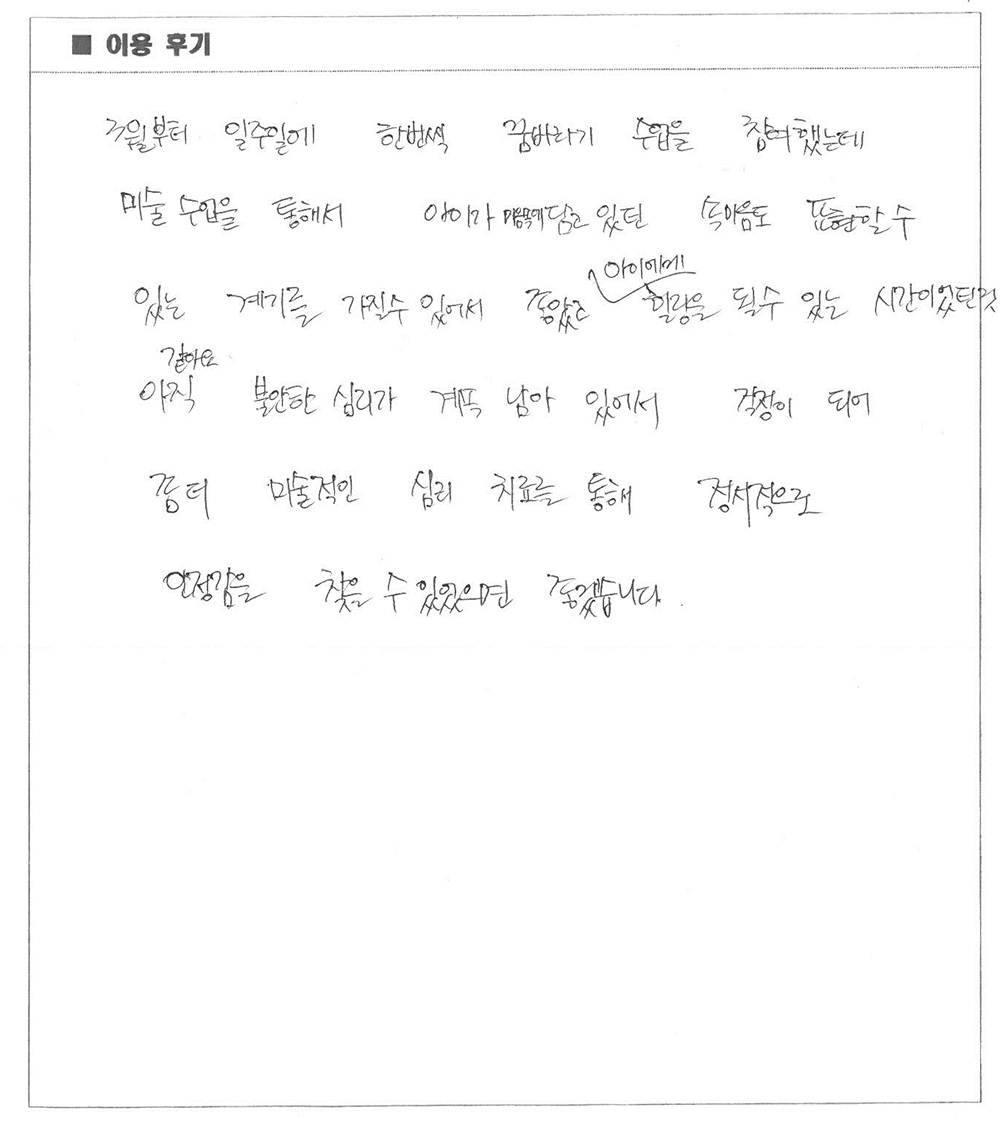 ■ 이용 후기
3월부터 일주일에 한번씩 꿈바라기 수업을 참여했는데
미술 수업을 통해서 아이가 마음속에 담고 있던 속마음도 표현할 수
있는 계기를 가질수 있어서 좋았고 아이에게 힐링을 될수 있는 시간이었던것
같아요
아직 불안한 심리가 계속 남아 있어서 걱정이 되어
좀더 미술적인 심리 치료를 통해 정서적으로
안정감을 찾을 수 있었으면 좋겠습니다.